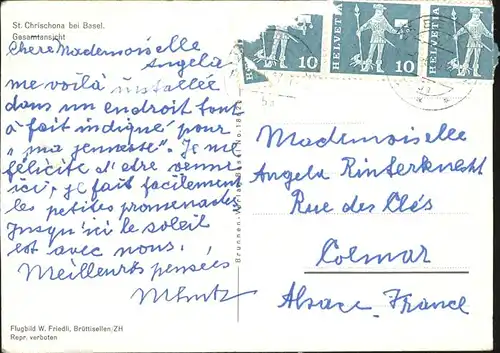 St. Chrischona bei Basel.
Gesamtansicht
Chere Mademoiselle
Angela
me voilà installée
dans un endroit tout
à fait indiqué pour
"ma jeunesse". Je me
félicite d'être venue
ici, je fait facilement
les petites promenades.
Jusqu'ici le soleil
est avec nous.
Meilleures pensées
Flugbild W. Friedli, Brüttisellen/ZH
Repr. verboten
HELVETIA 10
HELVETIA 10
HELVETIA
Mademoiselle
Angela Rinterknecht
Rue des Clés
Colmar
Alsace France